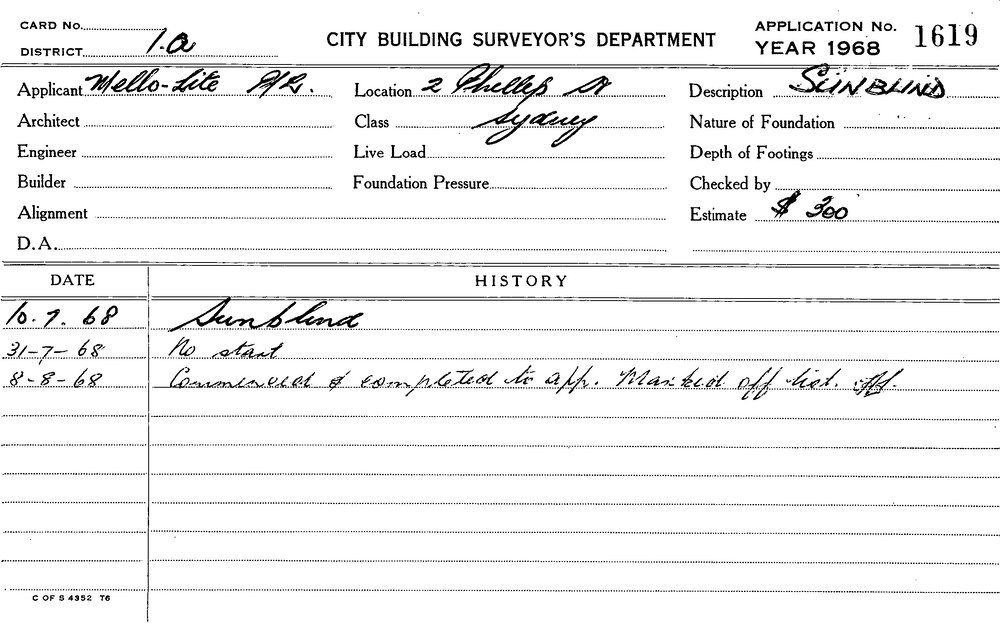 CARD No.
DISTRICT 1.a
CITY BUILDING SURVEYOR'S DEPARTMENT
APPLICATION No. 1619
YEAR 1968
Applicant Mello-Lite P/L. Location 2 Phillip St Description SUNBLIND
Architect Class Sydney Nature of Foundation
Engineer Live Load Depth of Footings
Builder Foundation Pressure Checked by
Alignment Estimate $ 300
D.A.
DATE HISTORY
10.7.68 Sunblind
31-7-68 No start
8-8-68 Commenced & completed to app. Marked off list.
C OF S 4352 T6